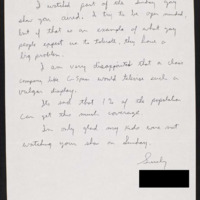 I watched part of the Sunday gay
show you aired. I try to be open minded,
but if that is an example of what gay
people expect us to tolerate, they have a
big problem.
I am very disappointed that a class
company like C-Span would televise such a
vulgar display.
It's sad that 1% of the population
can get this much coverage.
I'm only glad my kids were not
watching your show on Sunday.
Sincerely